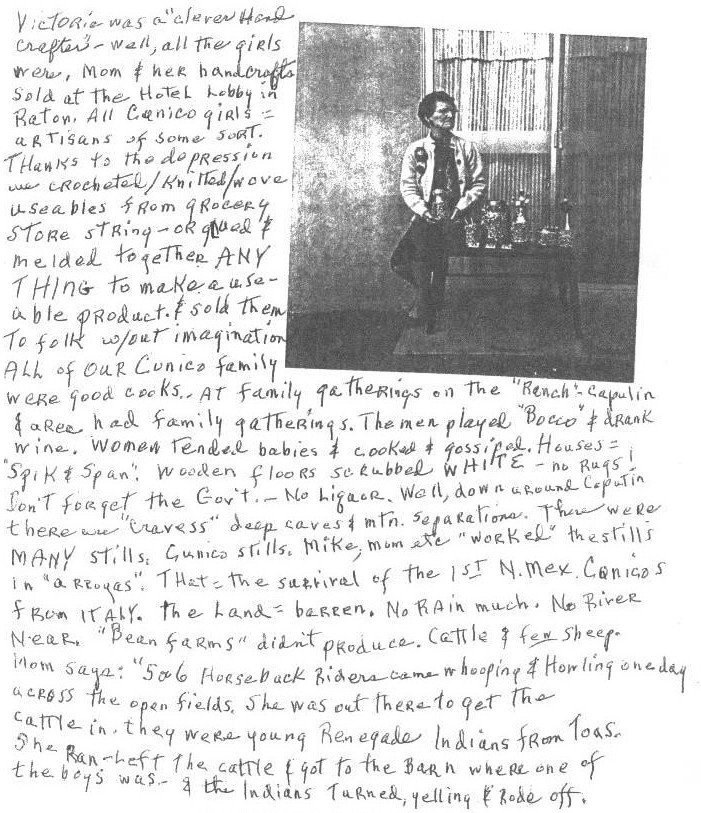 Victoria was a "clever Hand
crafter" - well, all the girls
were, Mom & her handcrafts
sold at the Hotel Lobby in
Raton. All Cunico girls =
ARTisans of some sort.
THanks to the depression
we crocheted/Knitted/wove
useables from grocery
store string - or glued &
melded together ANY
THING to make a use-
able product. & sold them
To folk w/out imagination
All of our Cunico family
were good cooks.. At family gatherings on the "Ranch" - Capulin
& area had family gatherings. The men played "Bocco" & drank
wine. Women Tended babies & cooked & gossiped. Houses =
"Spik & Span". Wooden floors scrubbed WHITE - no Rugs!
Don't forget the Gov't. - No Liquor. Well, down around Caputin
there are "cravess" deep caves & mtn. separations. There were
MANY stills. Cunico stills. Mike, mom etc "worked" the stills
in "arroyas". THat = the survival of the 1st N. Mex. Cunicos
from ITALY. The Land = barren. No RAin much. No River
Near. "Bean farms" didn't produce. Cattle & few sheep.
Mom says: "5 or 6 Horseback Riders came whooping & Howling one day
across the open fields. She was out there to get the
cattle in. they were young Renegade Indians from Toas.
She Ran - Left the cattle & got to the Barn where one of
the boys was - & the Indians Turned, yelling & Rode off.